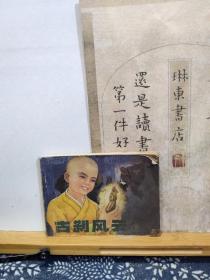 琳東書店
還是讀書
第一件好
古刹风云